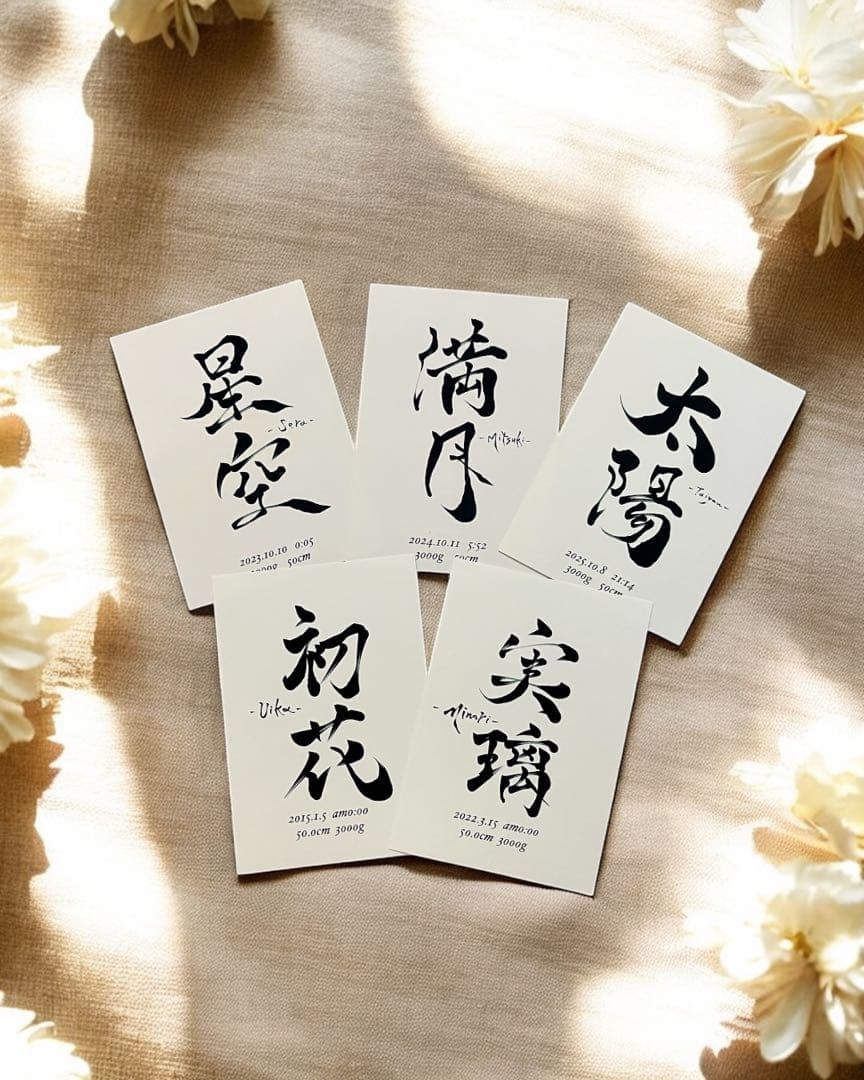 星空
-Sora-
2023.10.10 0:05
3000g 50cm
満月
-Mitsuki-
2024.10.11 5:52
3000g 50cm
太陽
-Taiyou-
2025.10.8 21:14
3000g 50cm
初花
-Uika-
2015.1.5 am0:00
50.0cm 3000g
実璃
-Minori-
2022.3.15 am0:00
50.0cm 3000g